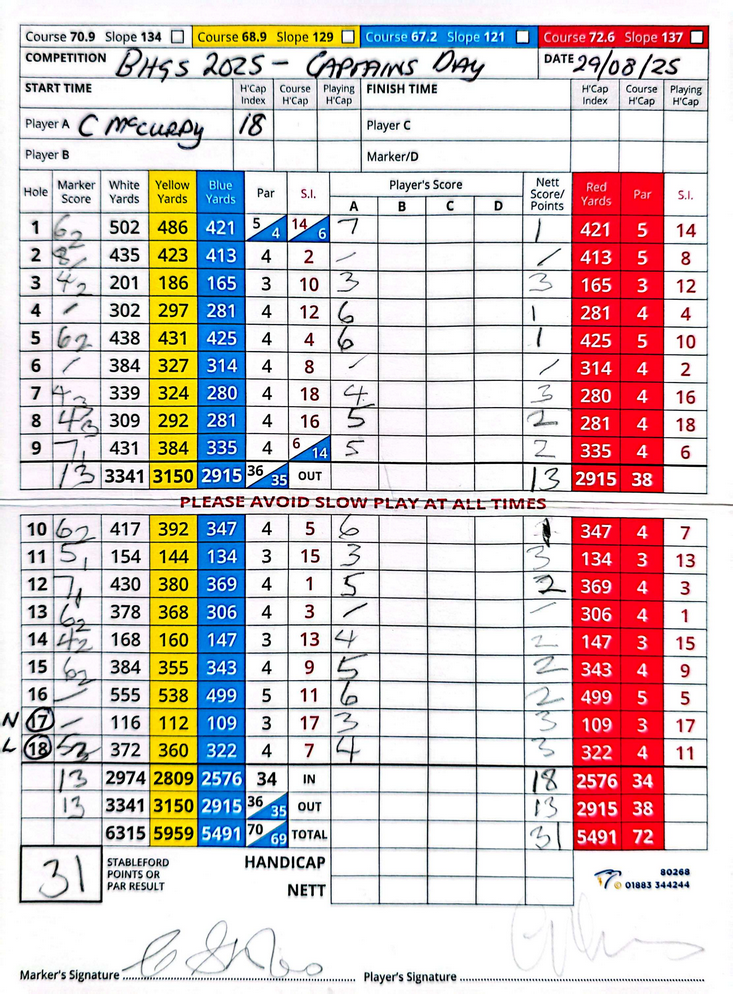 Course 70.9 Slope 134 Course 68.9 Slope 129 Course 67.2 Slope 121 Course 72.6 Slope 137
COMPETITION BHGS 2025 - CAPTAINS DAY DATE 29/08/25
START TIME H'Cap Index Course H'Cap Playing H'Cap FINISH TIME H'Cap Index Course H'Cap Playing H'Cap
Player A C McCURDY 18 Player C
Player B Marker/D
Hole Marker Score White Yards Yellow Yards Blue Yards Par S.I. Player's Score A B C D Nett Score/Points Red Yards Par S.I.
1 6 2 502 486 421 5/4 14/6 7 1 421 5 14
2 8/ 435 423 413 4 2 / / 413 5 8
3 4 2 201 186 165 3 10 3 3 165 3 12
4 / 302 297 281 4 12 6 1 281 4 4
5 6 2 438 431 425 4 4 6 1 425 5 10
6 / 384 327 314 4 8 / / 314 4 2
7 4 3 339 324 280 4 18 4 3 280 4 16
8 4 3 309 292 281 4 16 5 2 281 4 18
9 7 1 431 384 335 4 6/14 5 2 335 4 6
13 3341 3150 2915 36/35 OUT 13 2915 38
PLEASE AVOID SLOW PLAY AT ALL TIMES
10 6 2 417 392 347 4 5 6 1 347 4 7
11 5 1 154 144 134 3 15 3 3 134 3 13
12 7 1 430 380 369 4 1 5 2 369 4 3
13 6 2 378 368 306 4 3 / / 306 4 1
14 4 2 168 160 147 3 13 4 2 147 3 15
15 6 2 384 355 343 4 9 5 2 343 4 9
16 / 555 538 499 5 11 6 2 499 5 5
N 17 / 116 112 109 3 17 3 3 109 3 17
L 18 5 3 372 360 322 4 7 4 3 322 4 11
13 2974 2809 2576 34 IN 18 2576 34
13 3341 3150 2915 36/35 OUT 13 2915 38
6315 5959 5491 70/69 TOTAL 31 5491 72
31 STABLEFORD POINTS OR PAR RESULT HANDICAP
NETT
80268
01883 344244
Marker's Signature Player's Signature